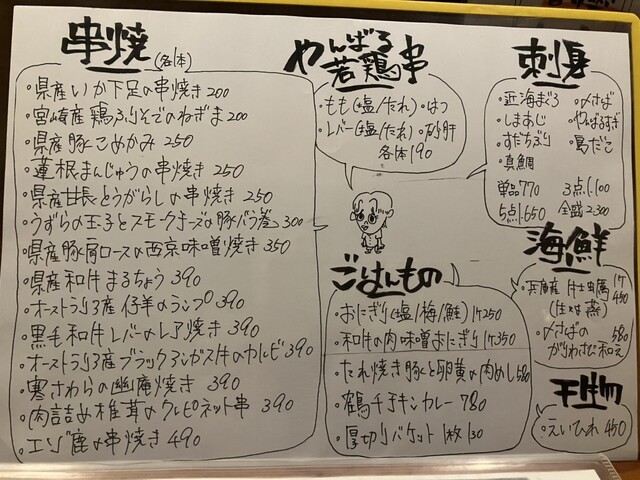 串焼 (各1本)
・県産いか下足の串焼き 200
・宮崎産鶏ふりそでのねぎま 200
・県産豚こめかみ 250
・蓮根まんじゅうの串焼き 250
・県産甘長とうがらしの串焼き 250
・うずらの玉子とスモークチーズの豚バラ巻 300
・県産豚肩ロースの西京味噌焼き 350
・県産和牛まるちょう 390
・オーストラリア産仔羊のランプ 390
・黒毛和牛レバーのレア焼き 390
・オーストラリア産ブラックアンガス牛のカルビ 390
・寒さわらの幽庵焼き 390
・肉詰め椎茸のクレピネット串 390
・エゾ鹿の串焼き 490
やんばる
若鶏串
・もも(塩/たれ) ・はつ
・レバー(塩/たれ) ・砂肝
各1本190
ごはんもの
・おにぎり(塩/梅/鮭) 1ケ250
・和牛の肉味噌おにぎり 1ケ350
・たれ焼き豚と卵黄の肉めし 580
・鶴千チキンカレー 780
・厚切りバケット 1枚130
刺身
・近海まぐろ ・〆さば
・しまあじ ・やんばるすぎ
・すだちぶり ・島だこ
・真鯛
単品770 3点1.100
5点1.650 全盛2.300
海鮮
・兵庫産 牡蠣 1ケ450
(生or蒸)
・〆さばの 580
がりわさび和え
・えいひれ 450